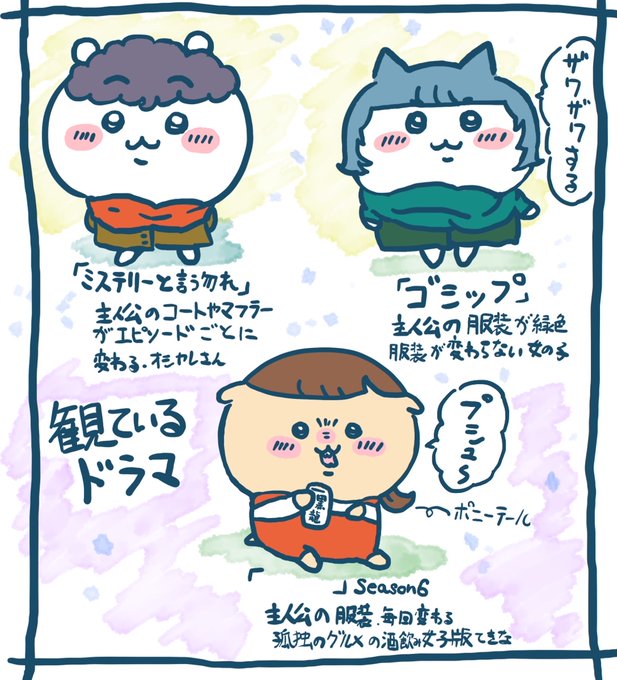 ザワザワする
「ミステリーと言う勿れ」
主人公のコートやマフラー
がエピソードごとに
変わる.オシャレさん
「ゴシップ」
主人公の服装が緑色
服装が変わらない女の子
観ている
ドラマ
プシュ〜
黒龍
ポニーテール
「 」Season6
主人公の服装、毎回変わる
孤独のグルメの酒飲み女子版てきな